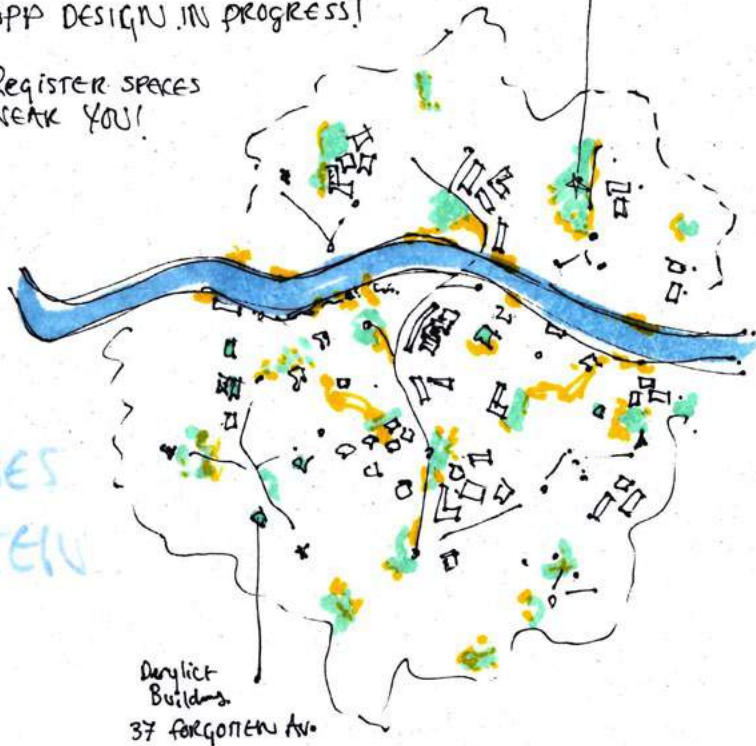 APP DESIGN IN PROGRESS!
REGISTER SPACES
NEAR YOU!
ES
TEN
Derylict
Building
37 FORGOTTEN AV.